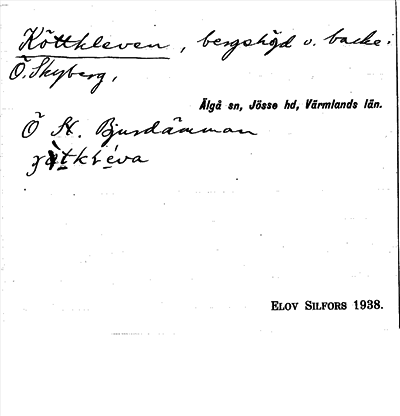 Köttkleven, bergshöjd o. backe:
Ö. Skyberg,
Älgå sn, Jösse hd, Värmlands län.
Ö St. Bjurdämman
ELOV SILFORS 1938.